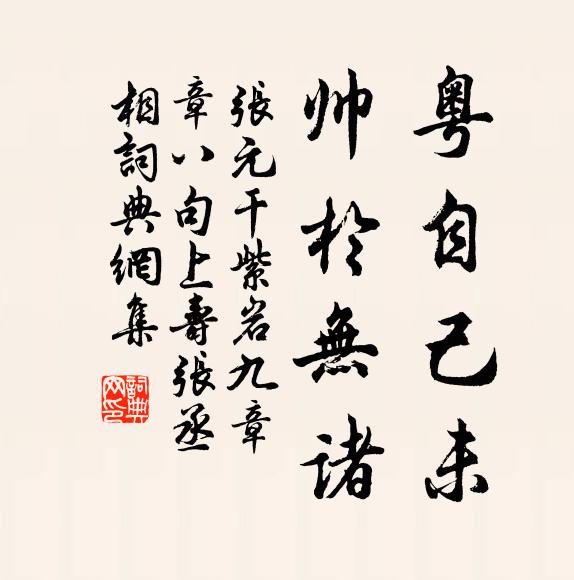 粤自己未
帅於無诸
張元干紫岩九章
章八句上壽張丞
相詞典網集
詞典网印